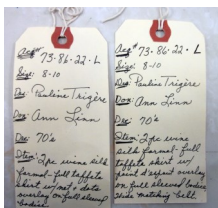 Acq# 73-86-22-L
Size: 8-10
Des: Pauline Trigère
Don: Ann Linn
Dec: 70's
Item: 2 pc wine silk
formal - full taffeta
skirt w/ net + dots
overlay on full sleeved
bodice
Acq# 73-86-22-L
Size: 8-10
Des: Pauline Trigère
Don: Ann Linn
Dec: 70's
Item: 2 pc wine
silk formal - full
taffeta skirt w/
point d'esprit overlay
on full sleeved bodice
wide matching belt.